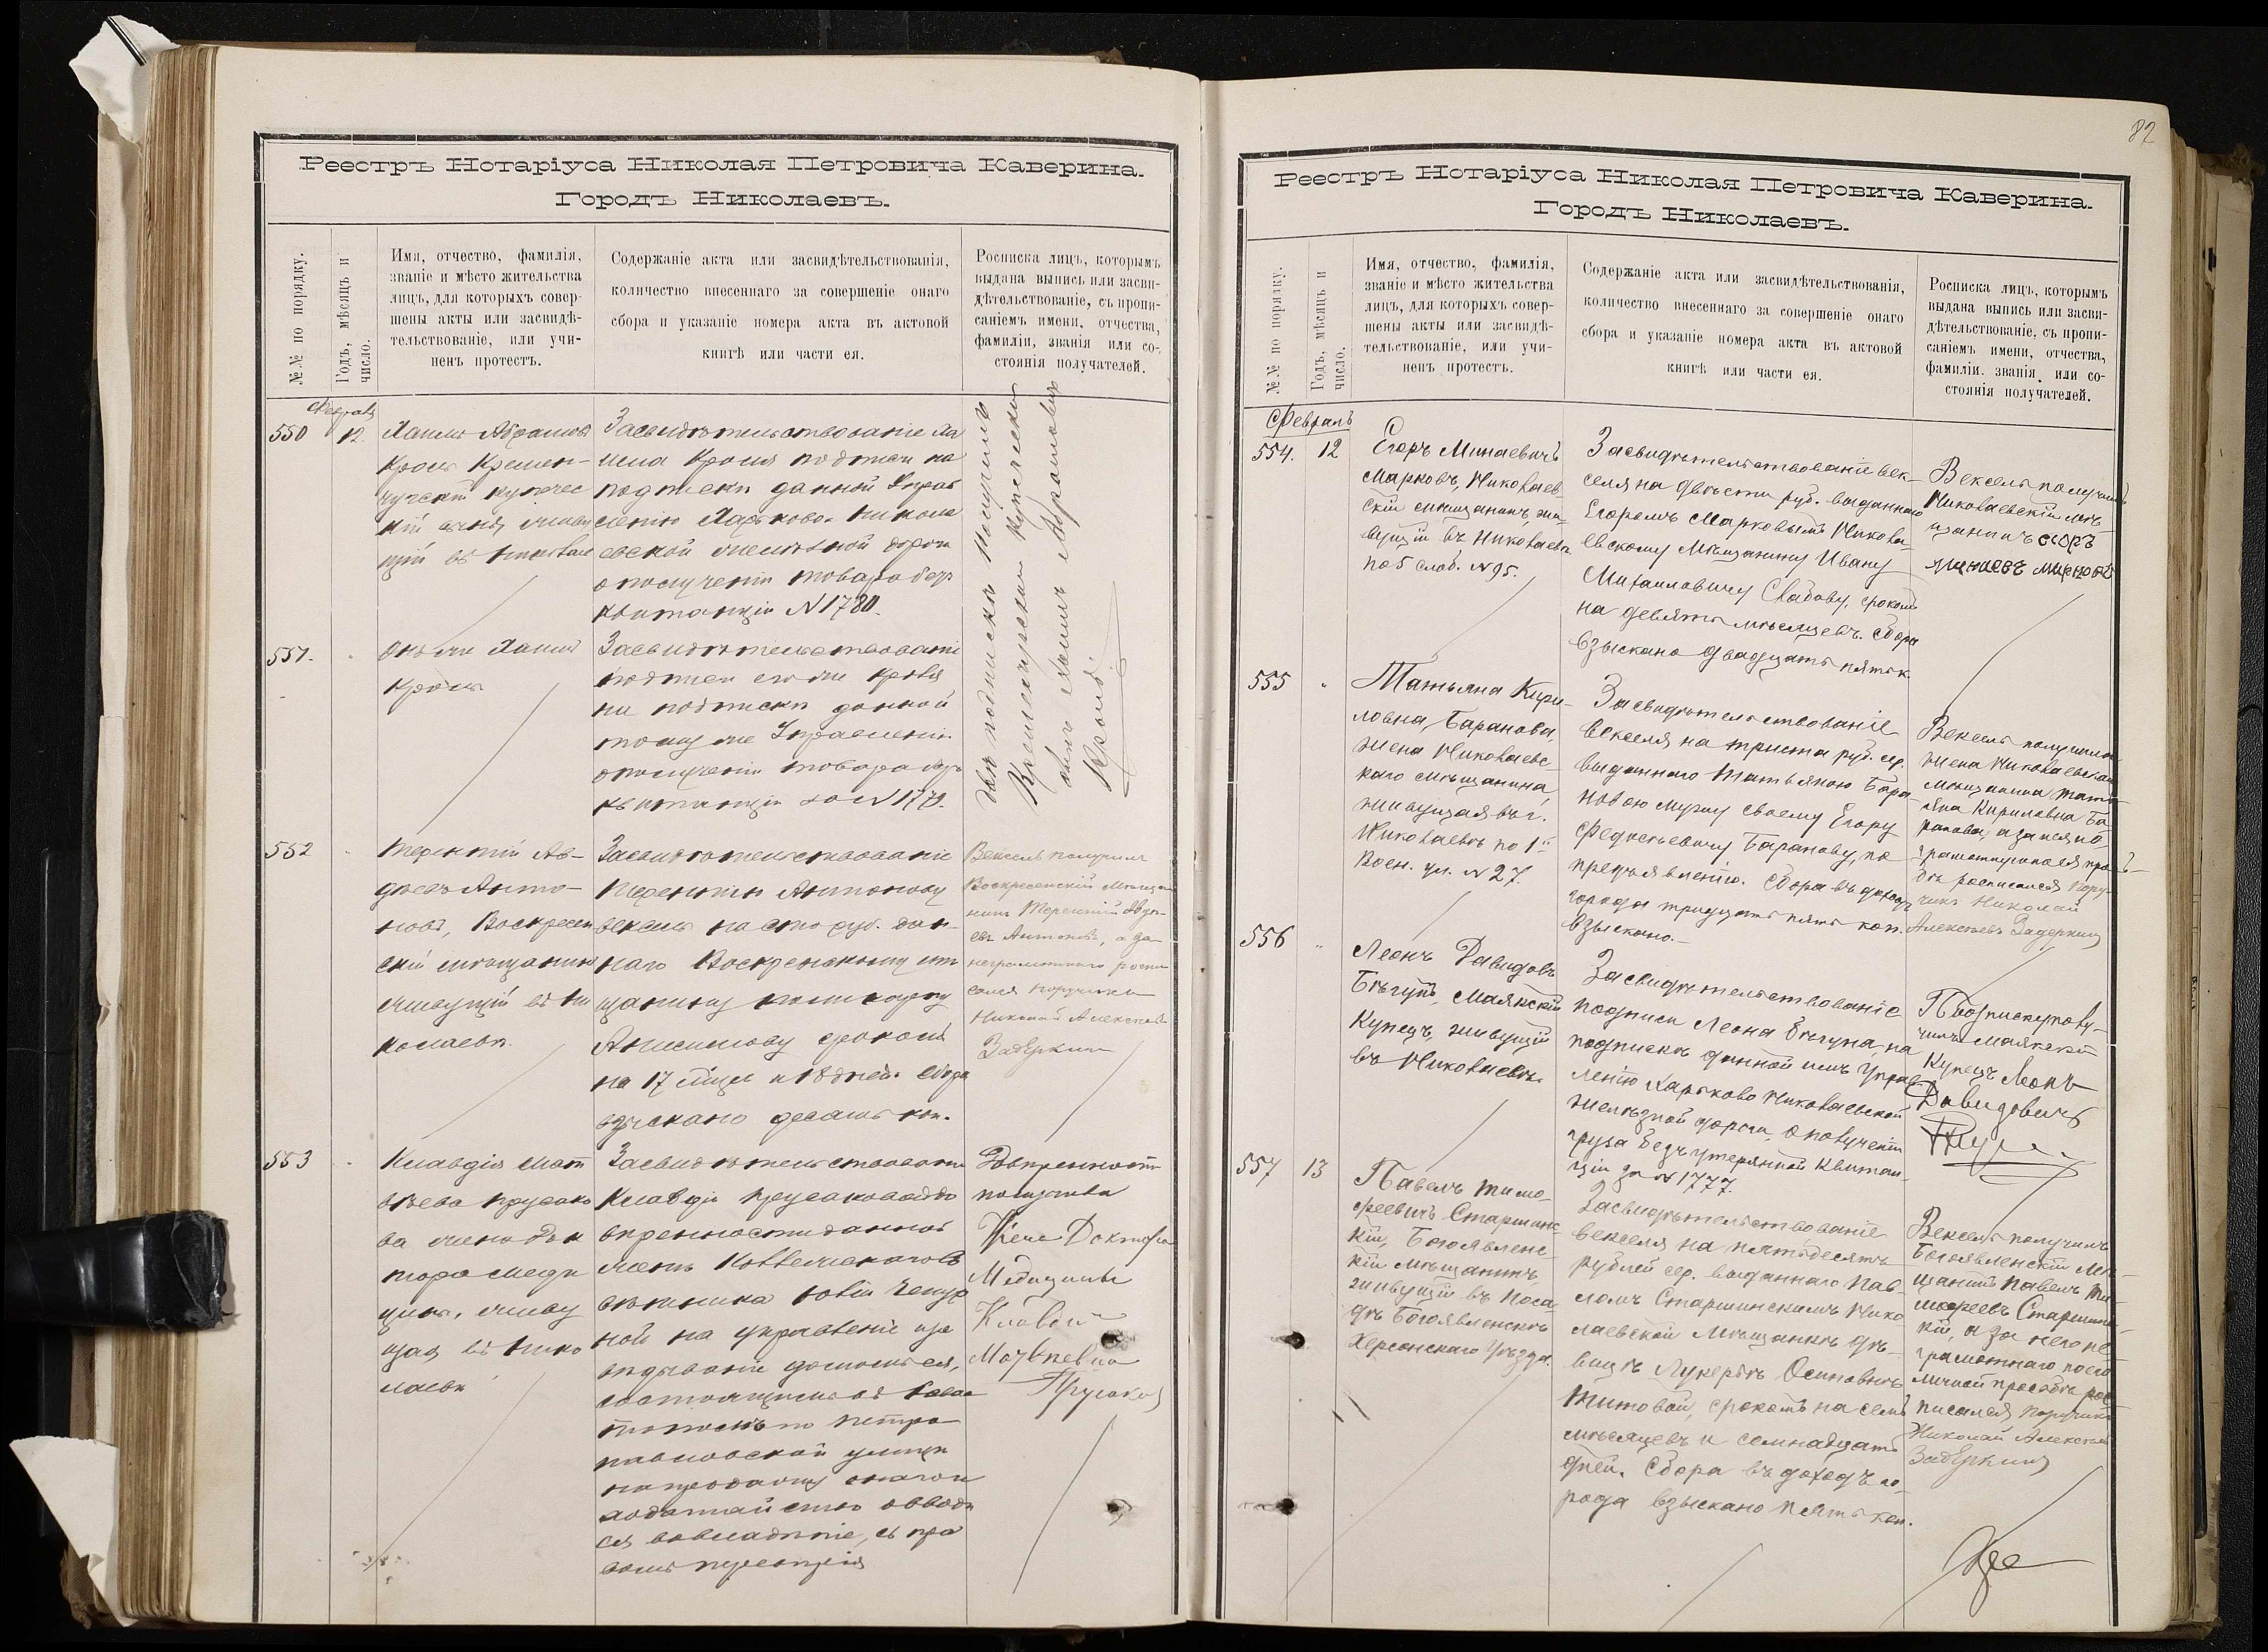 Реестръ Нотаріуса Николая Петровича Каверина.
Городъ Николаевъ.
№№ по порядку.
Годъ, мѣсяцъ и
число.
Имя, отчество, фамилія,
званіе и мѣсто жительства
лицъ, для которыхъ совер-
шены акты или засвидѣ-
тельствованіе, или учи-
ненъ протестъ.
Содержаніе акта или засвидѣтельствованія,
количество внесеннаго за совершеніе онаго
сбора и указаніе номера акта въ актовой
книгѣ или части ея.
Росписка лицъ, которымъ
выдана выпись или засви-
дѣтельствованіе, съ пропи-
саніемъ имени, отчества,
фамиліи, званія или со-
стоянія получателей.
550
12.
Хаимъ Абрамовъ
Кроль Кремен-
чугскій купечес
кій сынъ, живу
щій въ Николае
Засвидѣтельствованіе Ха
има Кроля подписи на
подписки данной Управ
ленію Харьково-Никола
евской желѣзной дороги
о полученіи товара безъ
квитанціи N 1780.
551.
Онъ же Хаимъ
Кроль
Засвидѣтельствованіе
подписи его же Кроля
на подписки данной
тому же Управленію
о полученіи товара безъ
квитанціи N 1779.
двѣ подписки получилъ
Кременчугскій купеческій
сынъ Хаимъ Абрамовичъ
Кроль
552
Терентій Ав-
дѣевъ Анто-
новъ, Воскресен
скій мѣщанинъ
живущій въ Ни
колаевѣ.
Засвидѣтельствованіе
Терентію Антонову
векселя на сто руб. дан-
наго Воскресенскому мѣ
щанину
Анисимову срокомъ
на 17 мѣсяц и 18 дней. Сбора
взыскано десять коп.
Вексель получилъ
Воскресенскій мѣща
нинъ Терентій Авдѣ-
евъ Антоновъ, а за
неграмотнаго роспи
сался поручикъ
Николай Алексѣевъ
Задёркинъ
553
Клавдія Мат
вѣева Прусако
ва жена Док
тора Меди
цины, живу
щая въ Нико
лаевѣ
Засвидѣтельствованіе
Клавдіи Прусаковой до
вѣренности данной
женѣ Коллежскаго Со
вѣтника Юліи
ной на управленіе и за
вѣдываніе домомъ ея,
состоящимъ въ Сева
стополѣ по Петро
павловской улицѣ
на продажу онаго и
ходатайство о вводѣ
ея во владѣніе, съ пра
вомъ передовѣрія
Довѣренность
получила
Жена Доктора
Медицины
Клавдія
Матвѣевна
Прусакова
82
Реестръ Нотаріуса Николая Петровича Каверина.
Городъ Николаевъ.
№№ по порядку.
Годъ, мѣсяцъ и
число.
Имя, отчество, фамилія,
званіе и мѣсто жительства
лицъ, для которыхъ совер-
шены акты или засвидѣ-
тельствованіе, или учи-
ненъ протестъ.
Содержаніе акта или засвидѣтельствованія,
количество внесеннаго за совершеніе онаго
сбора и указаніе номера акта въ актовой
книгѣ или части ея.
Росписка лицъ, которымъ
выдана выпись или засви-
дѣтельствованіе, съ пропи-
саніемъ имени, отчества,
фамиліи. званія или со-
стоянія получателей.
Февраль
554.
12
Егоръ Минаевичъ
Марковъ, Николаев-
скій мѣщанинъ, жи-
вущій въ Николаевѣ
по 5 слоб. N 95.
Засвидѣтельствованіе век-
селя на двѣсти руб. выданнаго
Егоремъ Марковымъ Никола-
евскому Мѣщанину Ивану
Михаиловичу Свадову, срокомъ
на девять мѣсяцевъ. Сбора
взыскано двадцать пять к.
Вексель получилъ
Николаевскій мѣ-
щанинъ Егоръ
Минаевъ Марковъ
555
"
Татьяна Кири-
ловна, Баранова,
жена Николаевс-
каго мѣщанина,
живущая въ г.
Николаевѣ по 1й
Воен. ул. N 27.
Засвидѣтельствованіе
векселя на триста руб. сер.
выданнаго Татьяною Бара-
новою мужу своему Егору
Федосѣевичу Баранову, по
предъявленію. Сбора въ доходъ
города тридцать пять коп.
взыскано.-
Вексель получила
жена Николаевскаго
мѣщанина Тать-
яна Кириловна Ба
ранова, а за нея не
грамотную по ея прось-
бѣ росписался Пору-
чикъ Николай
Алексѣевъ Задеркинъ
556
"
Леонъ Давидовъ
Бѣгунъ, Маякскій
Купецъ, живущій
въ Николаевѣ.
Засвидѣтельствованіе
подписи Леона Бѣгуна, на
подпискѣ данной имъ Управ-
ленію Харьково Николаевской
желѣзной дороги, о полученіи
груза безъ утерянной Квитан-
ціи за N 1777.
Подписку полу-
чилъ Маякскій
Купецъ Леонъ
Давидовичъ
557
13
Павелъ Тимо-
феевичъ Старшинс
кій, Богоявленс-
кій мѣщанинъ,
живущій въ Поса
дѣ Богоявленскѣ
Херсонскаго Уѣзда.
Засвидѣтельствованіе
векселя на пятьдесятъ
рублей сер. выданнаго Пав-
ломъ Старшинскимъ Нико
лаевской Мѣщанкѣ дѣ-
вицѣ Лукерьѣ Осиповнѣ
Титовой, срокомъ на семь
мѣсяцевъ и семнадцать
дней. Сбора въ доходъ го-
рода взыскано пять коп.
Вексель получилъ
Богоявленскій Мѣ-
щанинъ Павелъ Ти-
мофеевъ Старшинс-
кій, а за него не
грамотнаго по его
личной просьбѣ рос
писался Поручикъ
Николай Алексѣевъ
Задёркинъ